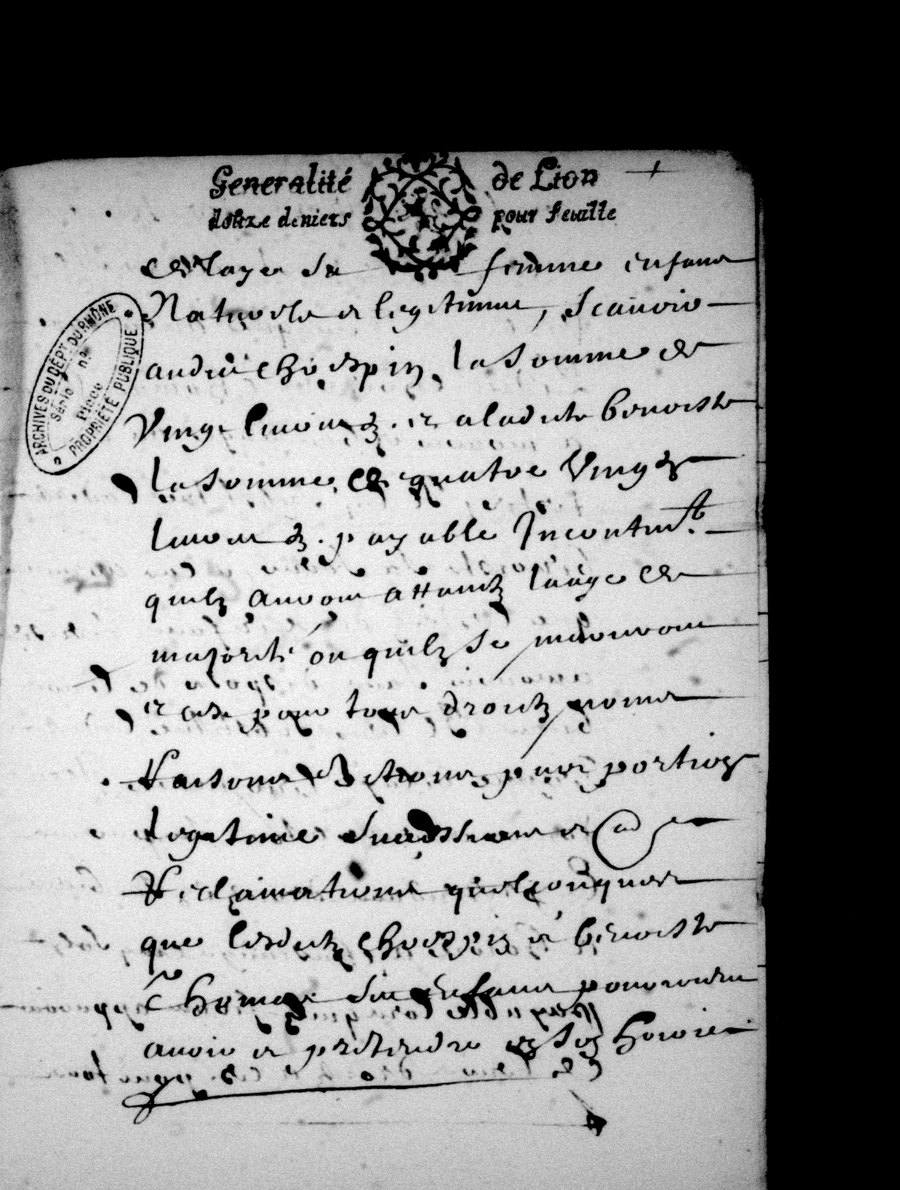 Generalité de Lion
douze deniers pour feuille
ARCHIVES DU DÉPT DU RHÔNE
Série n°
Pièce
PROPRIÉTÉ PUBLIQUE
femme enfans
Naturels et legitimes, Scavoir
andré Chorpin la Somme de
Vingt livres et a ladite benoiste
la Somme de quatre Vingt
livres payable Incontint.
quilz auront attaintz laage de
majorité ou quilz se marieront
et ce pour tous droitz noms
Raisons actions part portion
legitime et
Reclamations quelconques
que lesditz Chorpin et benoiste
Thomas enfans pourroient
avoir et pretendre en Son hoirie